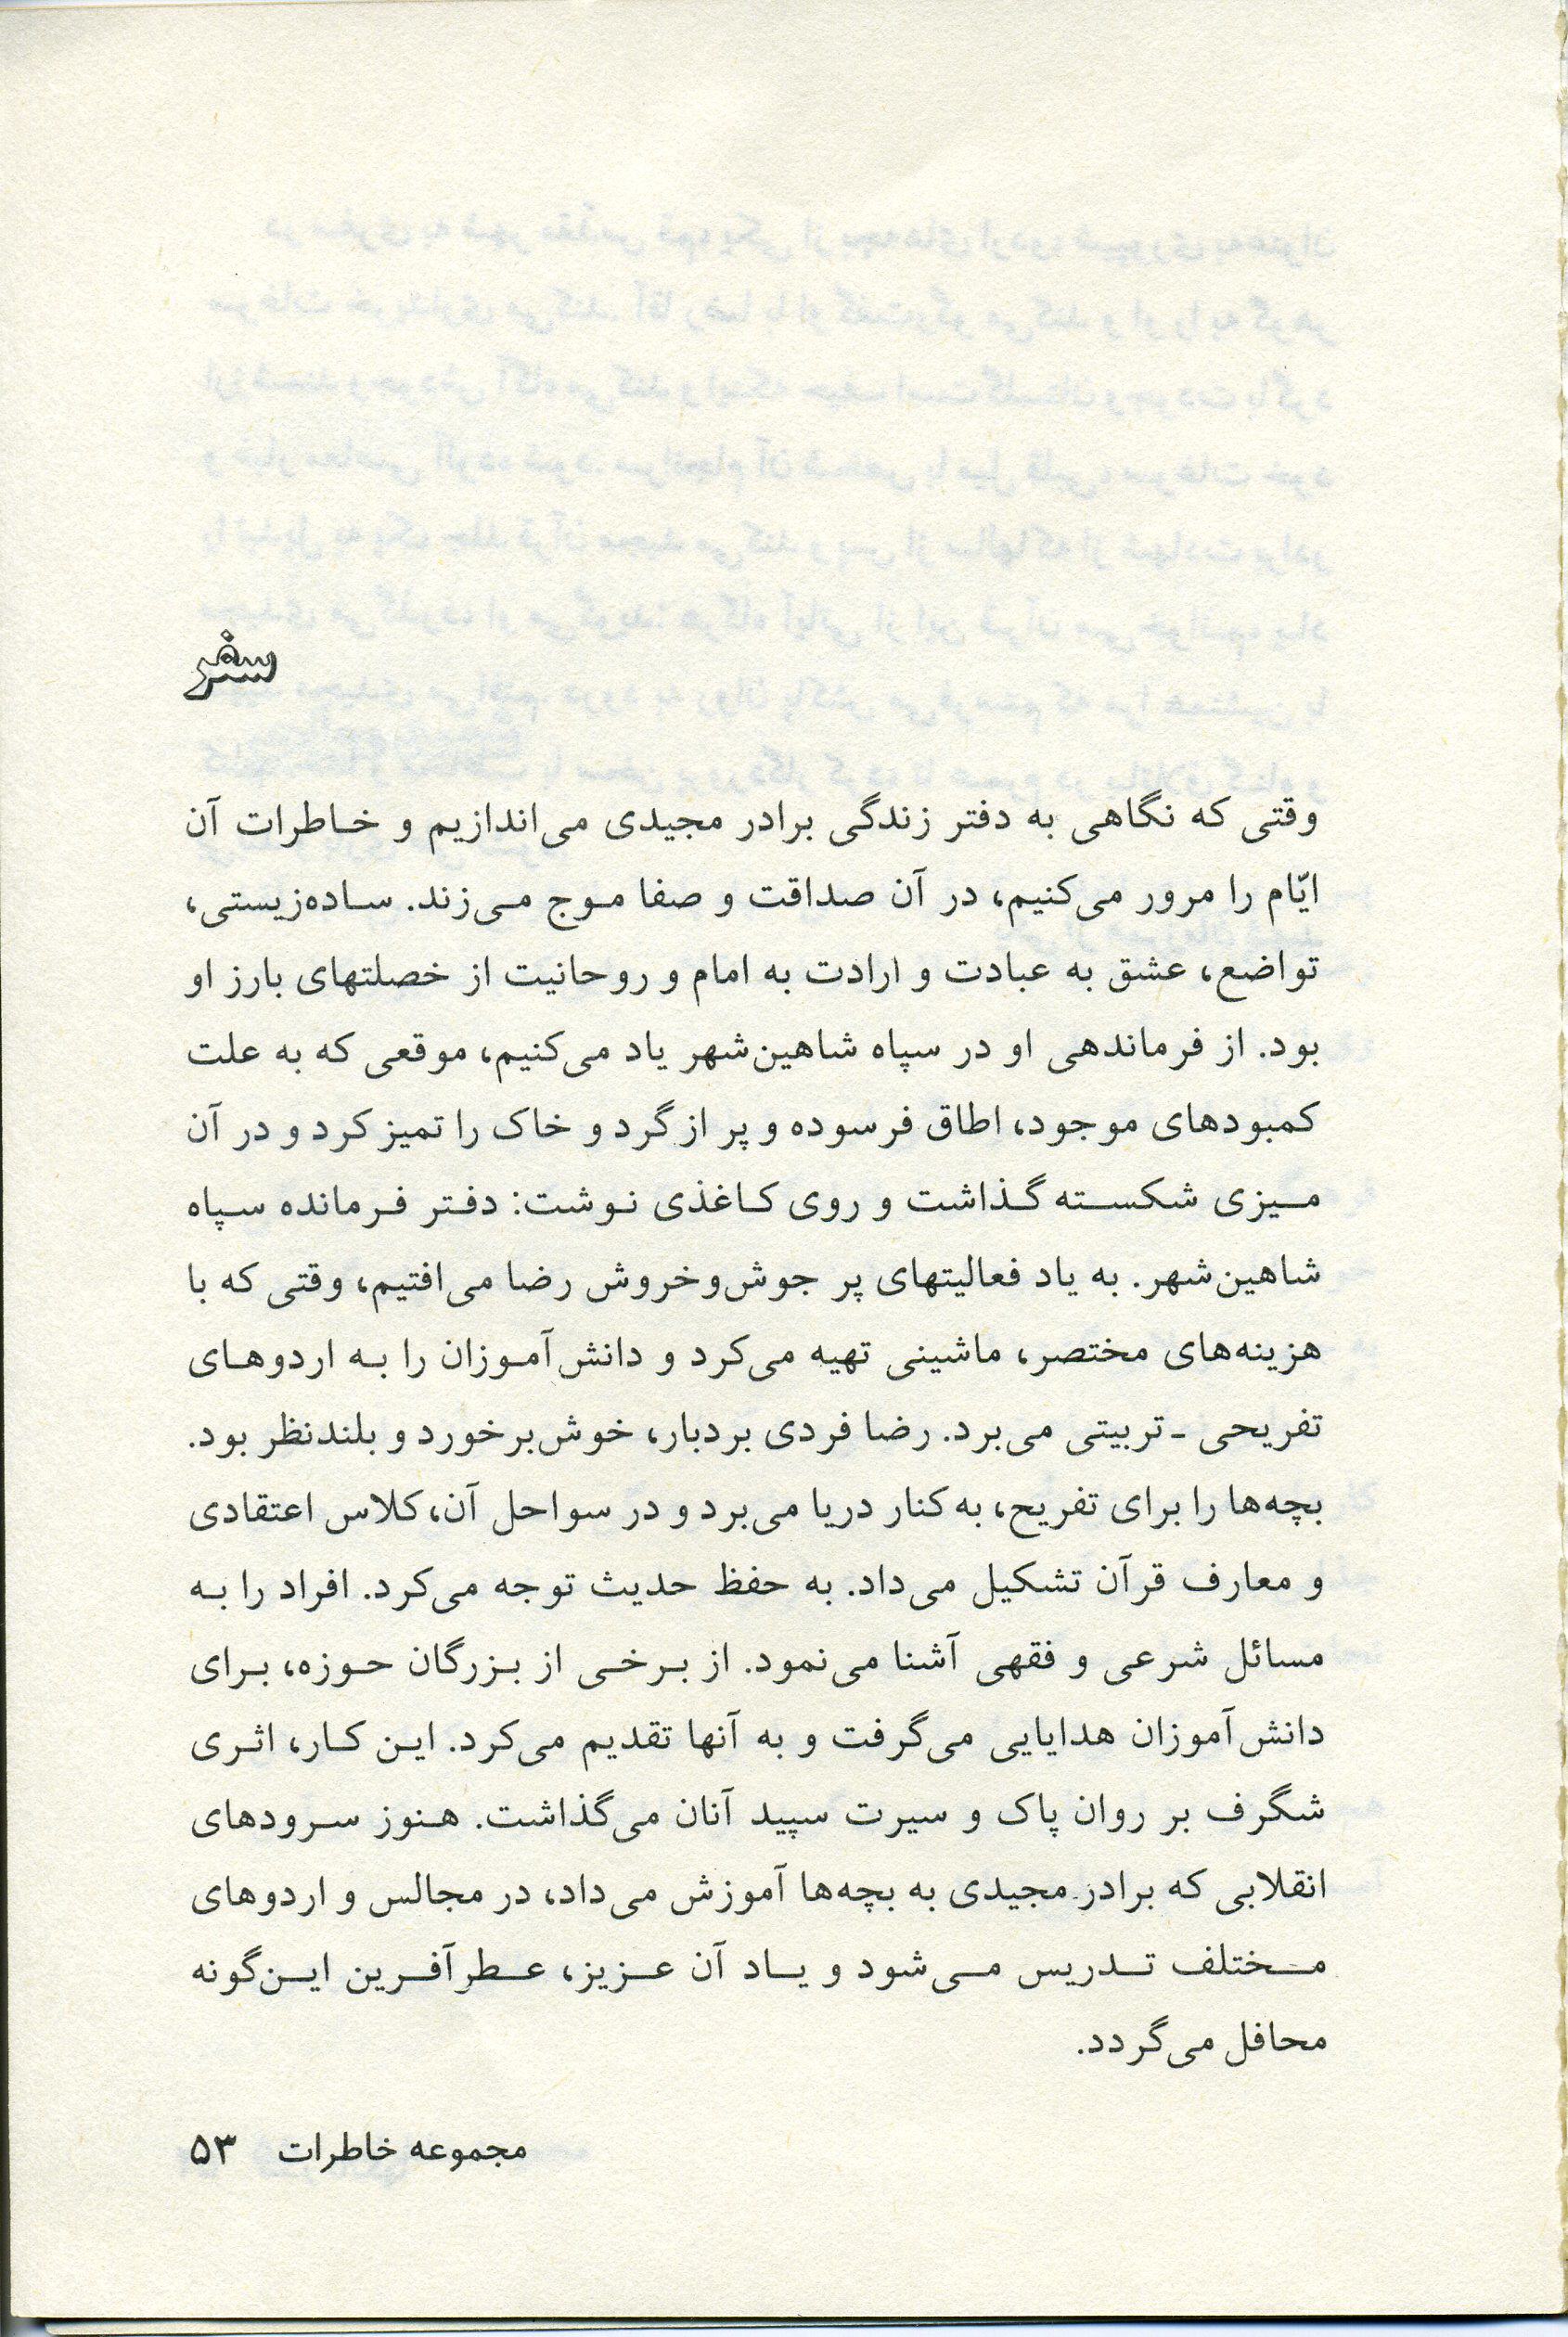 سفر
وقتی که نگاهی به دفتر زندگی برادر مجیدی می‌اندازیم و خاطرات آن
ایّام را مرور می‌کنیم، در آن صداقت و صفا موج می‌زند. ساده‌زیستی،
تواضع، عشق به عبادت و ارادت به امام و روحانیت از خصلتهای بارز او
بود. از فرماندهی او در سپاه شاهین‌شهر یاد می‌کنیم، موقعی که به علت
کمبودهای موجود، اطاق فرسوده و پر از گرد و خاک را تمیز کرد و در آن
میزی شکسته گذاشت و روی کاغذی نوشت: دفتر فرمانده سپاه
شاهین‌شهر. به یاد فعالیتهای پر جوش‌وخروش رضا می‌افتیم، وقتی که با
هزینه‌های مختصر، ماشینی تهیه می‌کرد و دانش‌آموزان را به اردوهای
تفریحی ـ تربیتی می‌برد. رضا فردی بردبار، خوش‌برخورد و بلندنظر بود.
بچه‌ها را برای تفریح، به کنار دریا می‌برد و در سواحل آن، کلاس اعتقادی
و معارف قرآن تشکیل می‌داد. به حفظ حدیث توجه می‌کرد. افراد را به
مسائل شرعی و فقهی آشنا می‌نمود. از برخی از بزرگان حوزه، برای
دانش‌آموزان هدایایی می‌گرفت و به آنها تقدیم می‌کرد. این کار، اثری
شگرف بر روان پاک و سیرت سپید آنان می‌گذاشت. هنوز سرودهای
انقلابی که برادر مجیدی به بچه‌ها آموزش می‌داد، در مجالس و اردوهای
مختلف تدریس می‌شود و یاد آن عزیز، عطرآفرین این‌گونه
محافل می‌گردد.
مجموعه خاطرات ۵۳